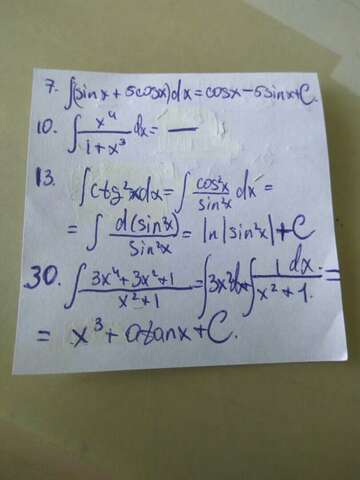 7. ∫(sinx + 5cosx)dx = cosx - 5sinx + C.
10. ∫ x⁴/(1+x³) dx = —
13. ∫ctg²xdx = ∫ cos²x/sin²x dx =
= ∫ d(sin²x)/sin²x = ln|sin²x| + C
30. ∫ (3x⁴+3x²+1)/(x²+1) = ∫3x²dx + ∫ 1dx/(x²+1) =
= x³ + atanx + C.